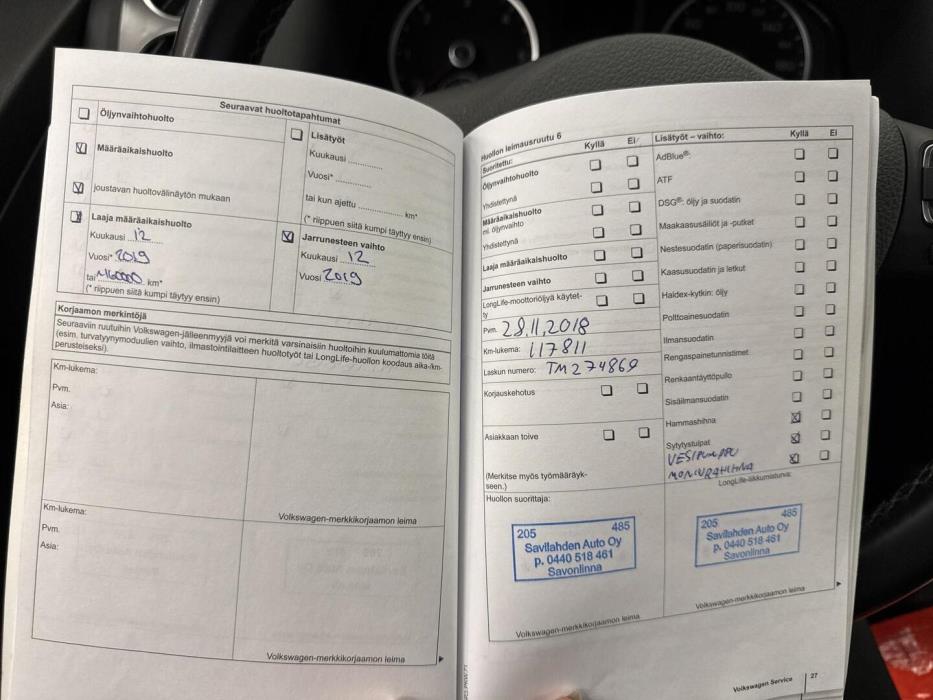 Seuraavat huoltotapahtumat
Öljynvaihtohuolto
Määräaikaishuolto
joustavan huoltovälinäytön mukaan
Laaja määräaikaishuolto
Kuukausi 12
Vuosi* 2019
tai 160000 km*
(* riippuen siitä kumpi täytyy ensin)
Lisätyöt
Kuukausi ............
Vuosi*............
tai kun ajettu ............ km*
(* riippuen siitä kumpi täytyy ensin)
Jarrunesteen vaihto
Kuukausi 12
Vuosi 2019
Korjaamon merkintöjä
Seuraaviin ruutuihin Volkswagen-jälleenmyyjä voi merkitä varsinaisiin huoltoihin kuulumattomia töitä
(esim. turvatyynymoduulien vaihto, ilmastointilaitteen huoltotyöt tai LongLife-huollon koodaus aika-/km-
perusteiseksi).
Km-lukema:
Pvm.
Asia:
Volkswagen-merkkikorjaamon leima
Km-lukema:
Pvm.
Asia:
Volkswagen-merkkikorjaamon leima
Huollon leimausruutu 6
Suoritettu: Kyllä Ei
Öljynvaihtohuolto
Yhdistettynä
Määräaikaishuolto
ml. öljynvaihto
Yhdistettynä
Laaja määräaikaishuolto
Jarrunesteen vaihto
LongLife-moottoriöljyä käytet-
ty
Pvm. 28.11.2018
Km-lukema: 117811
Laskun numero: TM274869
Korjauskehotus
Asiakkaan toive
(Merkitse myös työmääräyk-
seen.)
Huollon suorittaja:
205 485
Savilahden Auto Oy
p. 0440 518 461
Savonlinna
Volkswagen-merkkikorjaamon leima
Lisätyöt – vaihto: Kyllä Ei
AdBlue®:
ATF
DSG®: öljy ja suodatin
Maakaasusäiliöt ja -putket
Nestesuodatin (paperisuodatin)
Kaasusuodatin ja letkut
Haldex-kytkin: öljy
Polttoainesuodatin
Ilmansuodatin
Rengaspainetunnistimet
Renkaantäyttöpullo
Sisäilmansuodatin
Hammashihna
Sytytystulpat
VESIPUMPPU
MONIURAHIHNA
LongLife-liikkumisturva:
205 485
Savilahden Auto Oy
p. 0440 518 461
Savonlinna
Volkswagen-merkkikorjaamon leima
Volkswagen Service 27